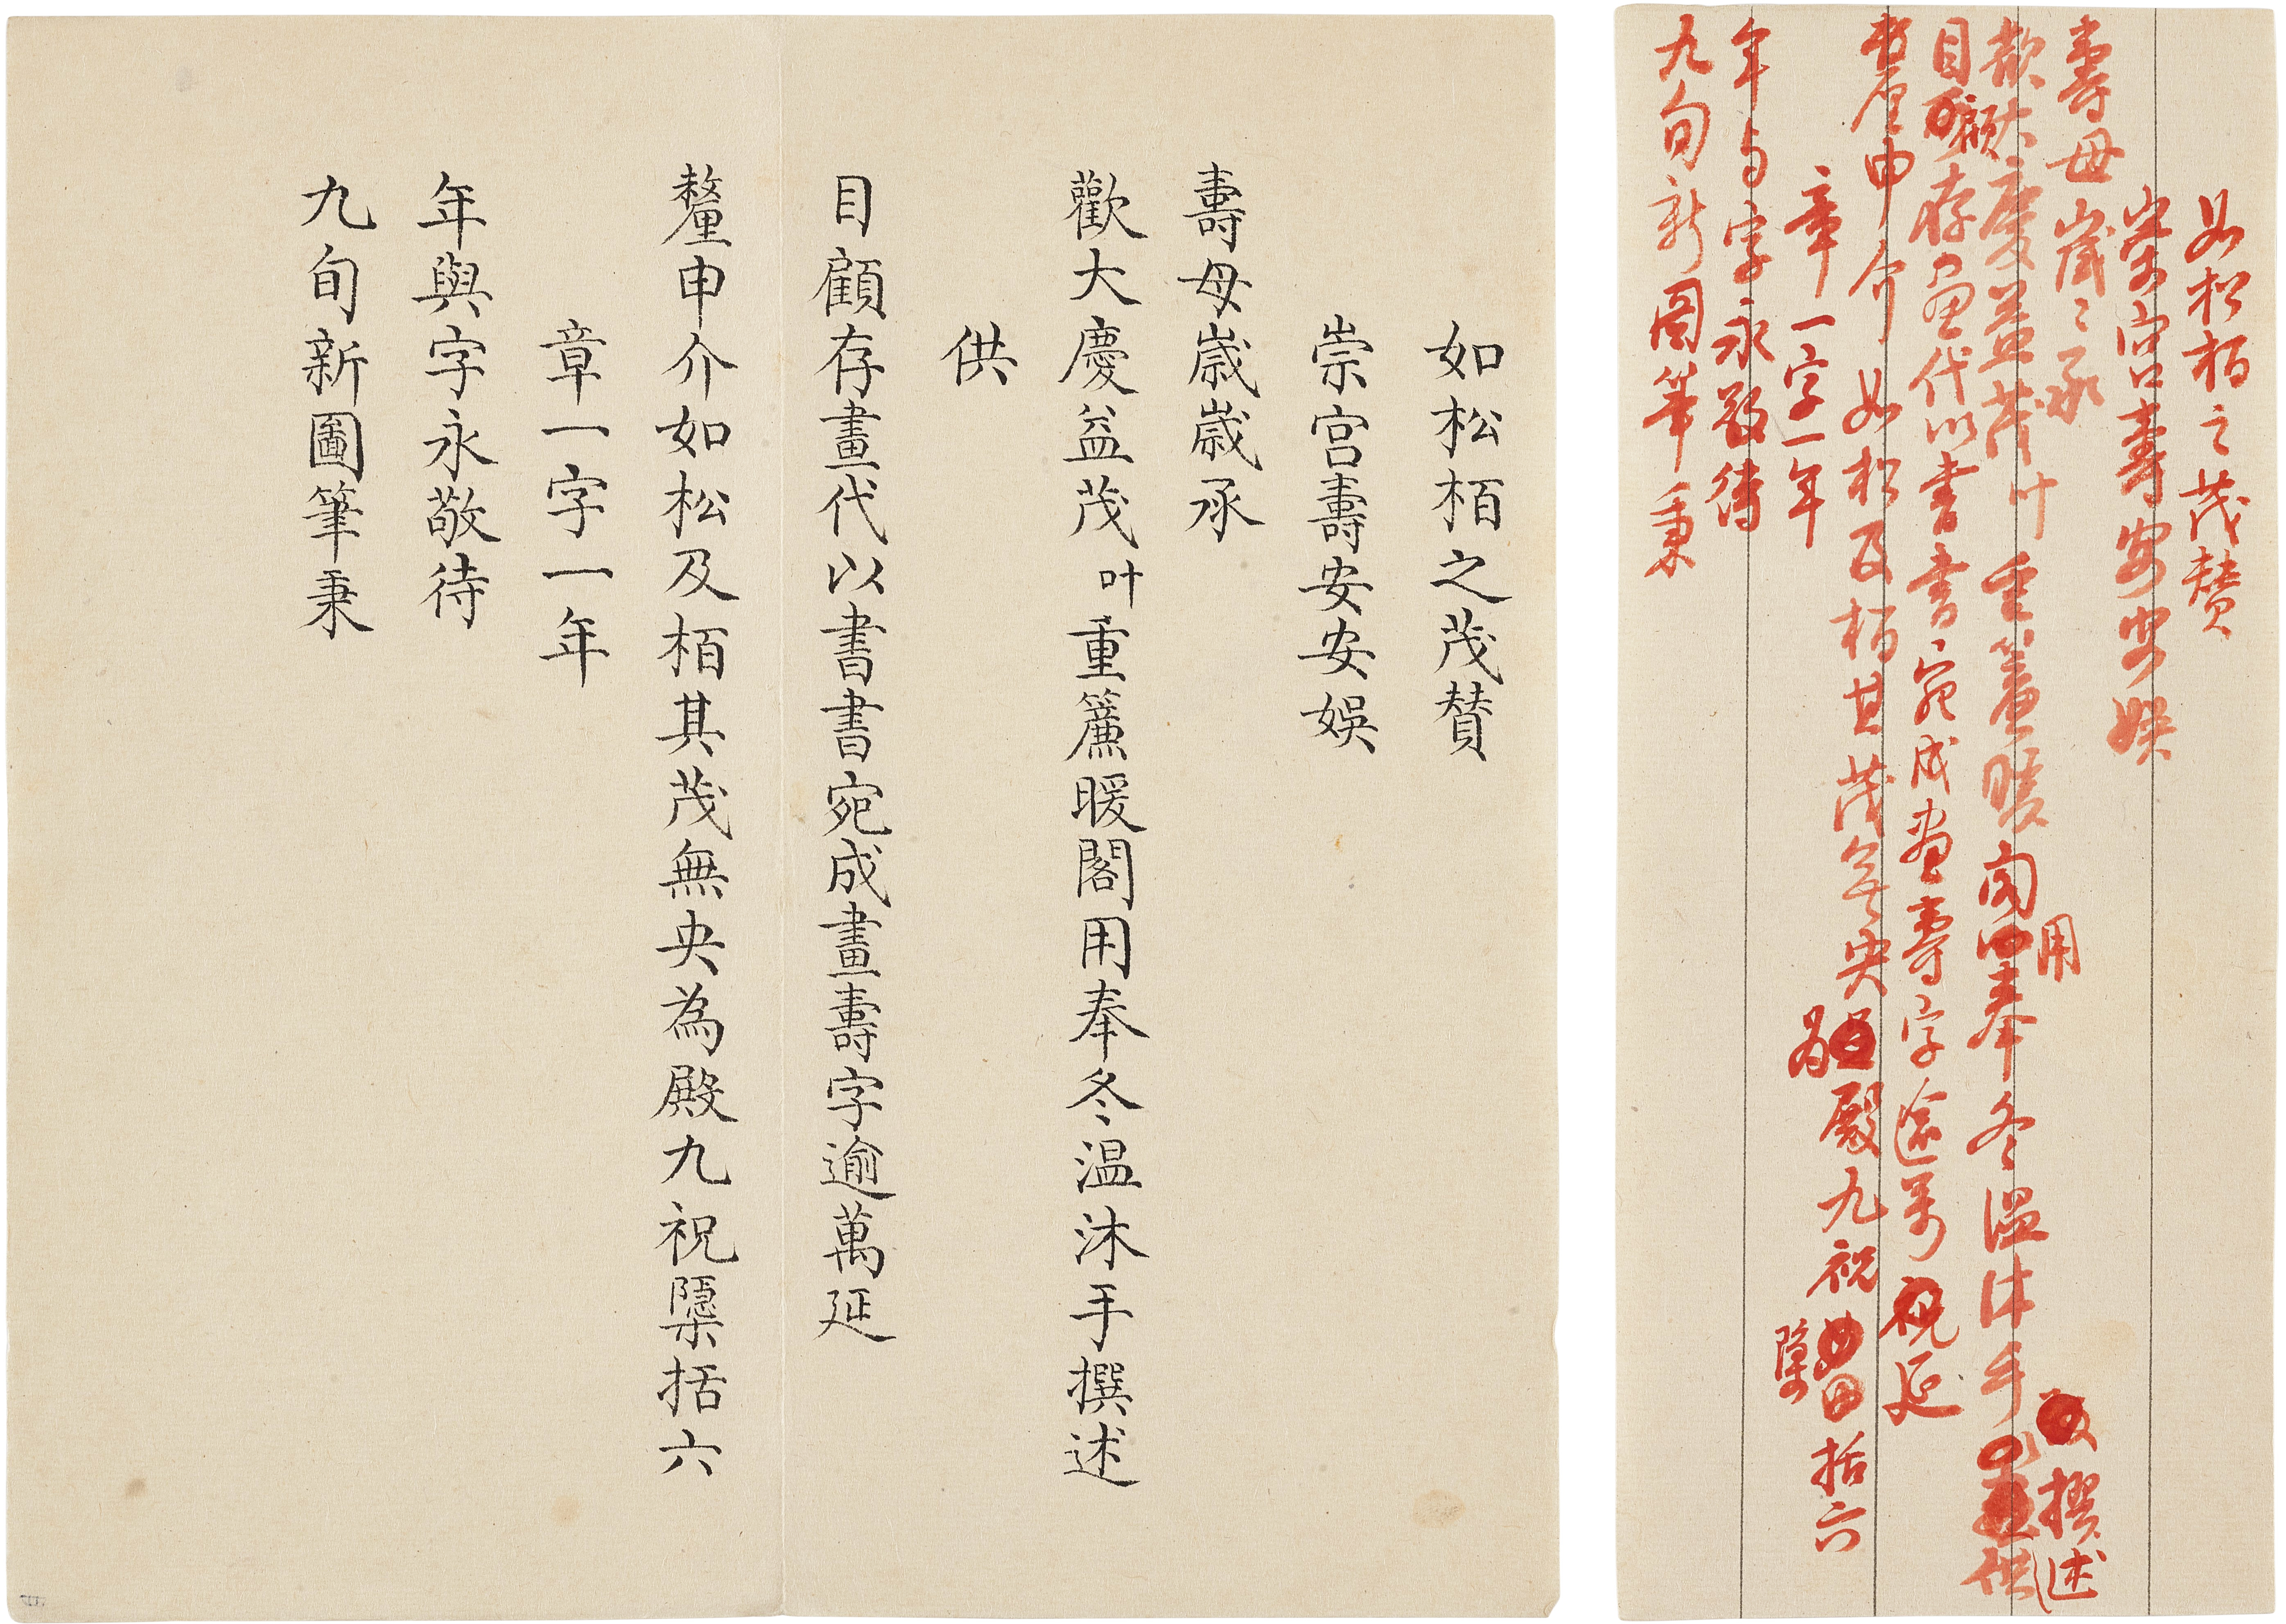 如松栢之茂賛
崇宫壽安安娛
壽母歲〻承
歡大慶益茂叶重簾暖閣用奉冬温沐手撰述供
目顧存畫代以書書宛成畫壽字逾万延
釐申介如松及栢其茂無央為殿九祝檃括六
章一字一年
年与字永敬待
九旬新圖筆秉
如松栢之茂賛
崇宫壽安安娛
壽母歲歲承
歡大慶益茂叶重簾暖閣用奉冬温沐手撰述
供
目顧存畫代以書書宛成畫壽字逾萬延
釐申介如松及栢其茂無央為殿九祝檃括六
章一字一年
年與字永敬待
九旬新圖筆秉